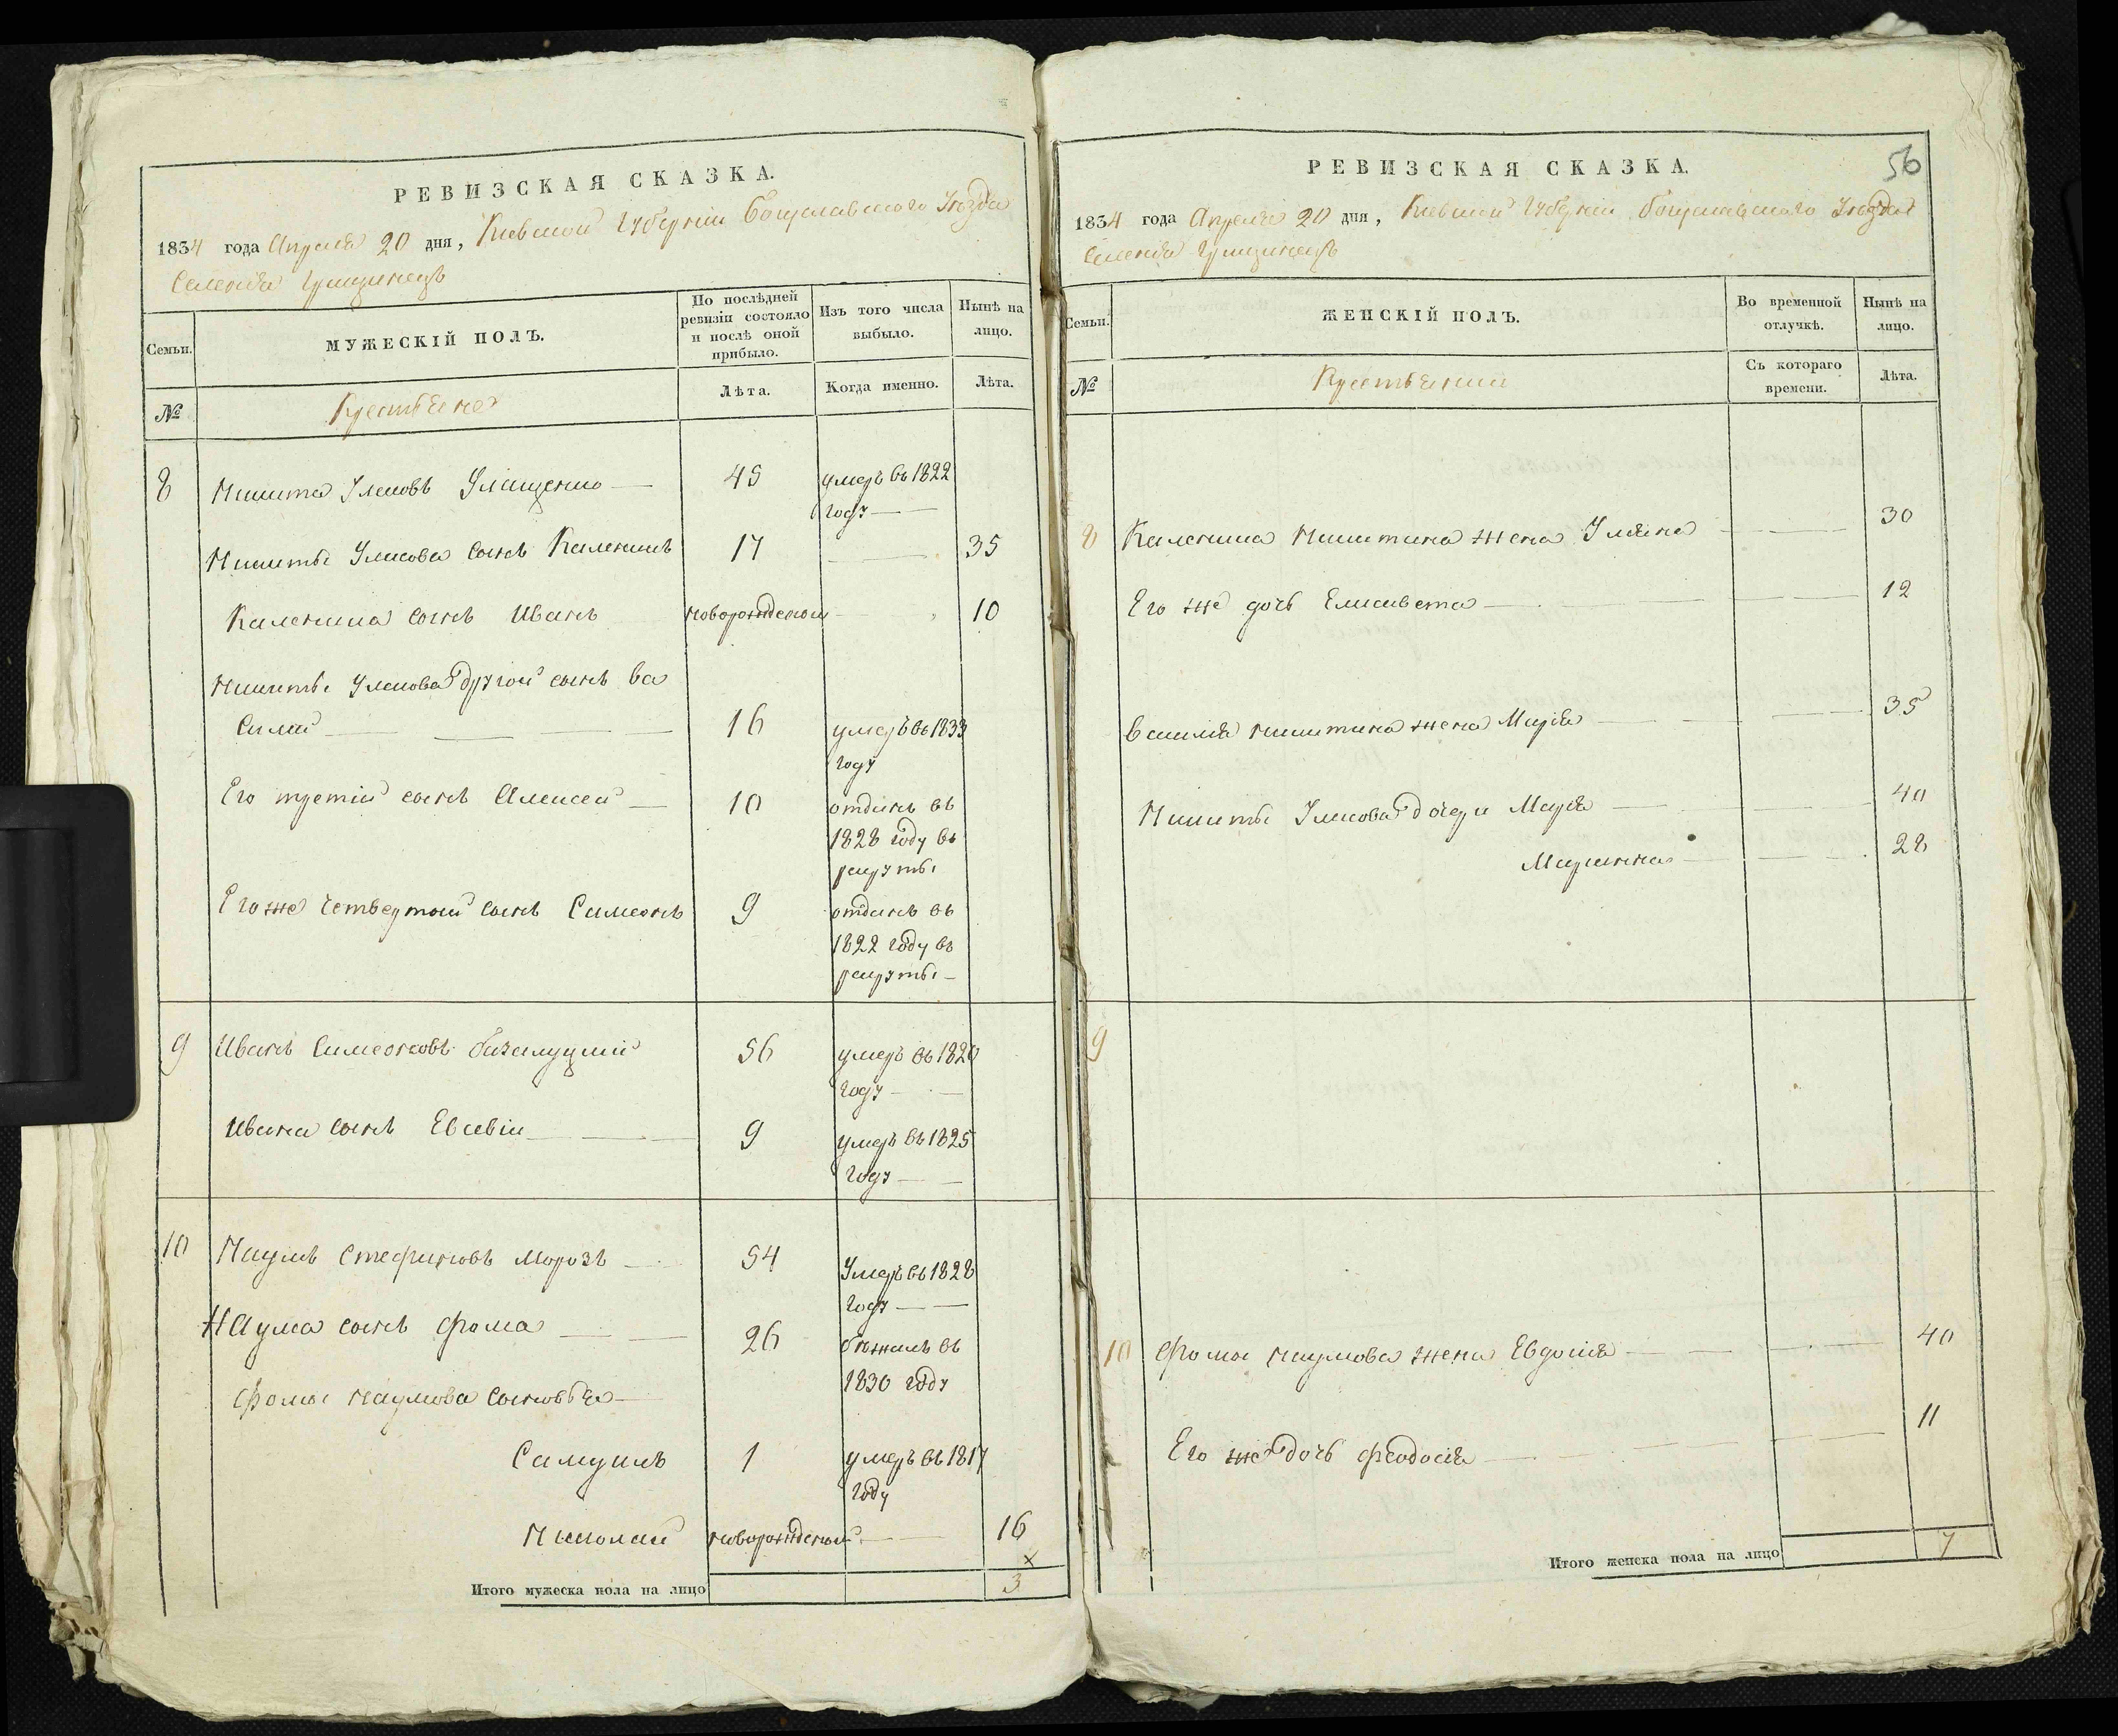 РЕВИЗСКАЯ СКАЗКА.
1834 года Апреля 20 дня, Кіевской Губерніи Богуславскаго Уѣзда
Селенія Грищинецъ
Семьи.
МУЖЕСКІЙ ПОЛЪ.
По послѣдней ревизіи состояло и послѣ оной прибыло.
Изъ того числа выбыло.
Нынѣ на лицо.
№
Крестьяне
Лѣта.
Когда именно.
Лѣта.
8 Никита Уласовъ 45 умеръ въ 1822
году
Никиты Уласова сынъ Каленикъ 17 35
Каленика сынъ Иванъ новорожденой 10
Никиты Уласова другой сынъ Ва
силій 16 умеръ въ 1833
году
Его третій сынъ Алексей 10 отданъ въ
1828 году въ
рекруты
Его же четвертой сынъ Симеонъ 9 отданъ въ
1822 году въ
рекруты
9 Иванъ Симеоновъ Базалуцкій 56 умеръ въ 1820
году
Ивана сынъ Евсевій 9 умеръ въ 1825
году
10 Наумъ Стефановъ Морозъ 54 Умеръ въ 1828
году
Наума сынъ Фома 26 бѣжалъ въ
1830 году
Фомы Наумова сыновья
Самуилъ 1 умеръ въ 1817
году
Николай новорожденой 16
Итого мужеска пола на лицо 3
56
РЕВИЗСКАЯ СКАЗКА.
1834 года Апреля 20 дня, Кіевской Губерніи Богуславскаго Уѣзда
Селенія Грищинецъ
Семьи.
ЖЕНСКІЙ ПОЛЪ.
Во временной отлучкѣ.
Нынѣ на лицо.
№
Крестьянки
Съ котораго времени.
Лѣта.
8 Каленика Никитина жена Уляна 30
Его же дочь Елисавета 12
Василія Никитина жена Марія 35
Никиты Уласова дочери Марія 40
Маріянна 28
9
10 Фомы Наумова жена Евдокія 40
Его же дочь Феодосія 11
Итого женска пола на лицо 7